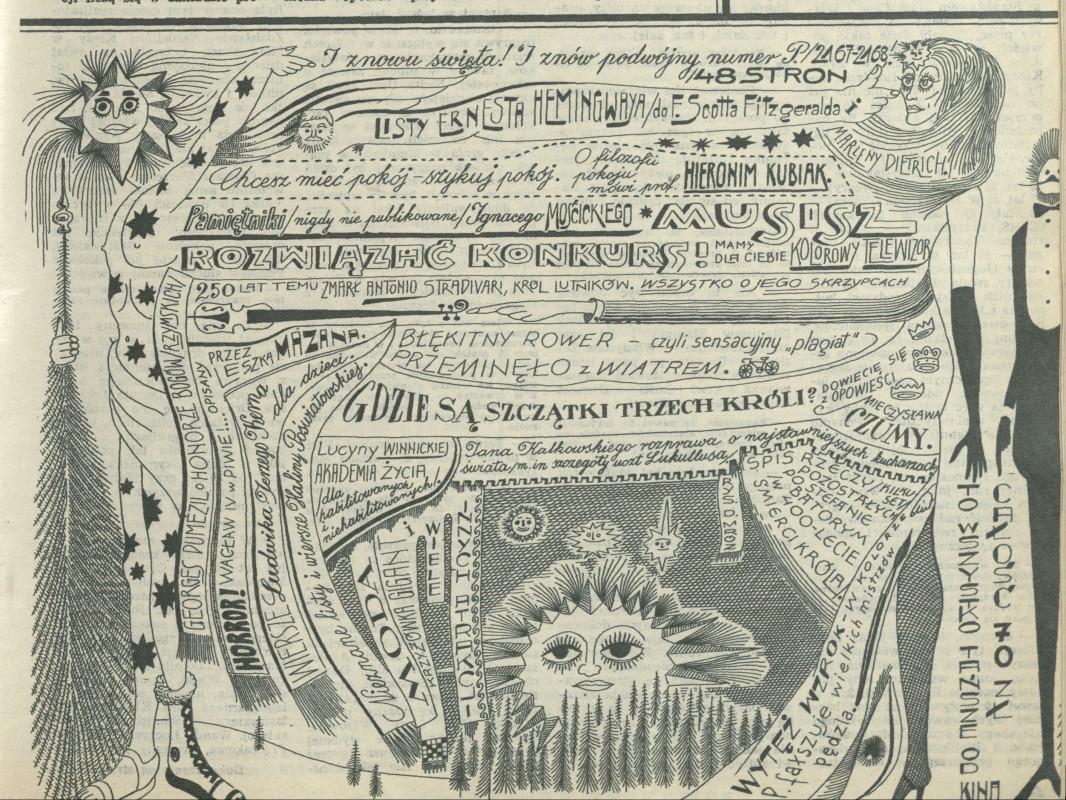 I znowu święta! I znów podwójny numer P./2167-2168!
/48.STRON
LISTY ERNESTA HEMINGWAYA/do F. Scotta Fitzgeralda i
MARLENY DIETRICH./
Chcesz mieć pokój-szykuj pokój.
O filozofii
pokoju
mówi prof. HIERONIM KUBIAK.
Pamiętniki/nigdy nie publikowane/Ignacego MOŚCICKIEGO * MUSISZ
ROZWIĄZAĆ KONKURS!
MAMY
DLA CIEBIE KOLOROWY TELEWIZOR
250 LAT TEMU ZMARŁ ANTONIO STRADIVARI, KRÓL LUTNIKÓW. WSZYSTKO O JEGO SKRZYPCACH
BŁĘKITNY ROWER - czyli sensacyjny „plagiat"
PRZEMINĘŁO z WIATREM.
GDZIE SĄ SZCZĄTKI TRZECH KRÓLI?
DOWIECIE SIĘ
z OPOWIEŚCI
MIECZYSŁAWA
CZUMY.
GEORGES DUMEZIL O HONORZE BOGÓW RZYMSKICH
HORROR! WACŁAW IV w PIWIE!... OPISANY
PRZEZ
LESZKA MAZANA.
WIERSZE Ludwika Jerzego Kerna dla dzieci.
Nieznane listy i wiersze Haliny Poświatowskiej.
Lucyny WINNICKIEJ
AKADEMIA ŻYCIA
/dla
habilitowanych
i niehabilitowanych/.
Jana Kalkowskiego rozprawa o najsławniejszych kucharzach
świata/m.in szczegóły uczt Lukullusa.
MODA
KRZYŻÓWKA GIGANT
i WIELE
INNYCH ATRAKCJI
SPIS RZECZY/KILKU SET/
POZOSTAŁYCH
PO STEFANIE
BATORYM
w 400-LECIE
ŚMIERCI KRÓLA
WYTĘŻ WZROK - W KOLORZE
P. fałszuje wielkich mistrzów
pędzla.
KINA